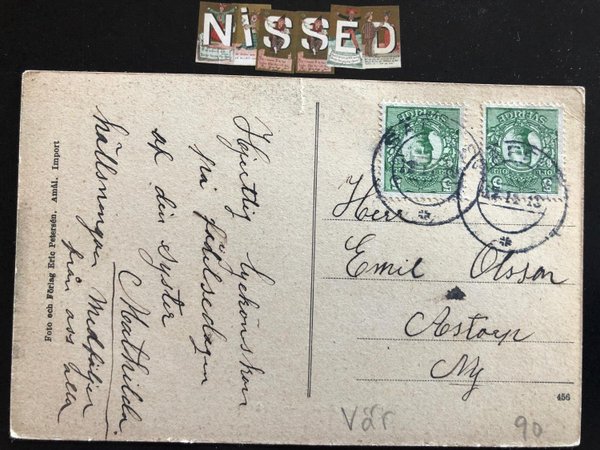 NiSSED
Hjärtlig Lyckönskan
på födelsedagen
af din syster
Mathilda
hälsningar Medföljer
från oss alla
Foto och Förlag Eric Petersén. Åmål. Import
SVERIGE
5
SVERIGE
5
Herr
Emil Olsson
Åstorp
Ny
456
Vär
90